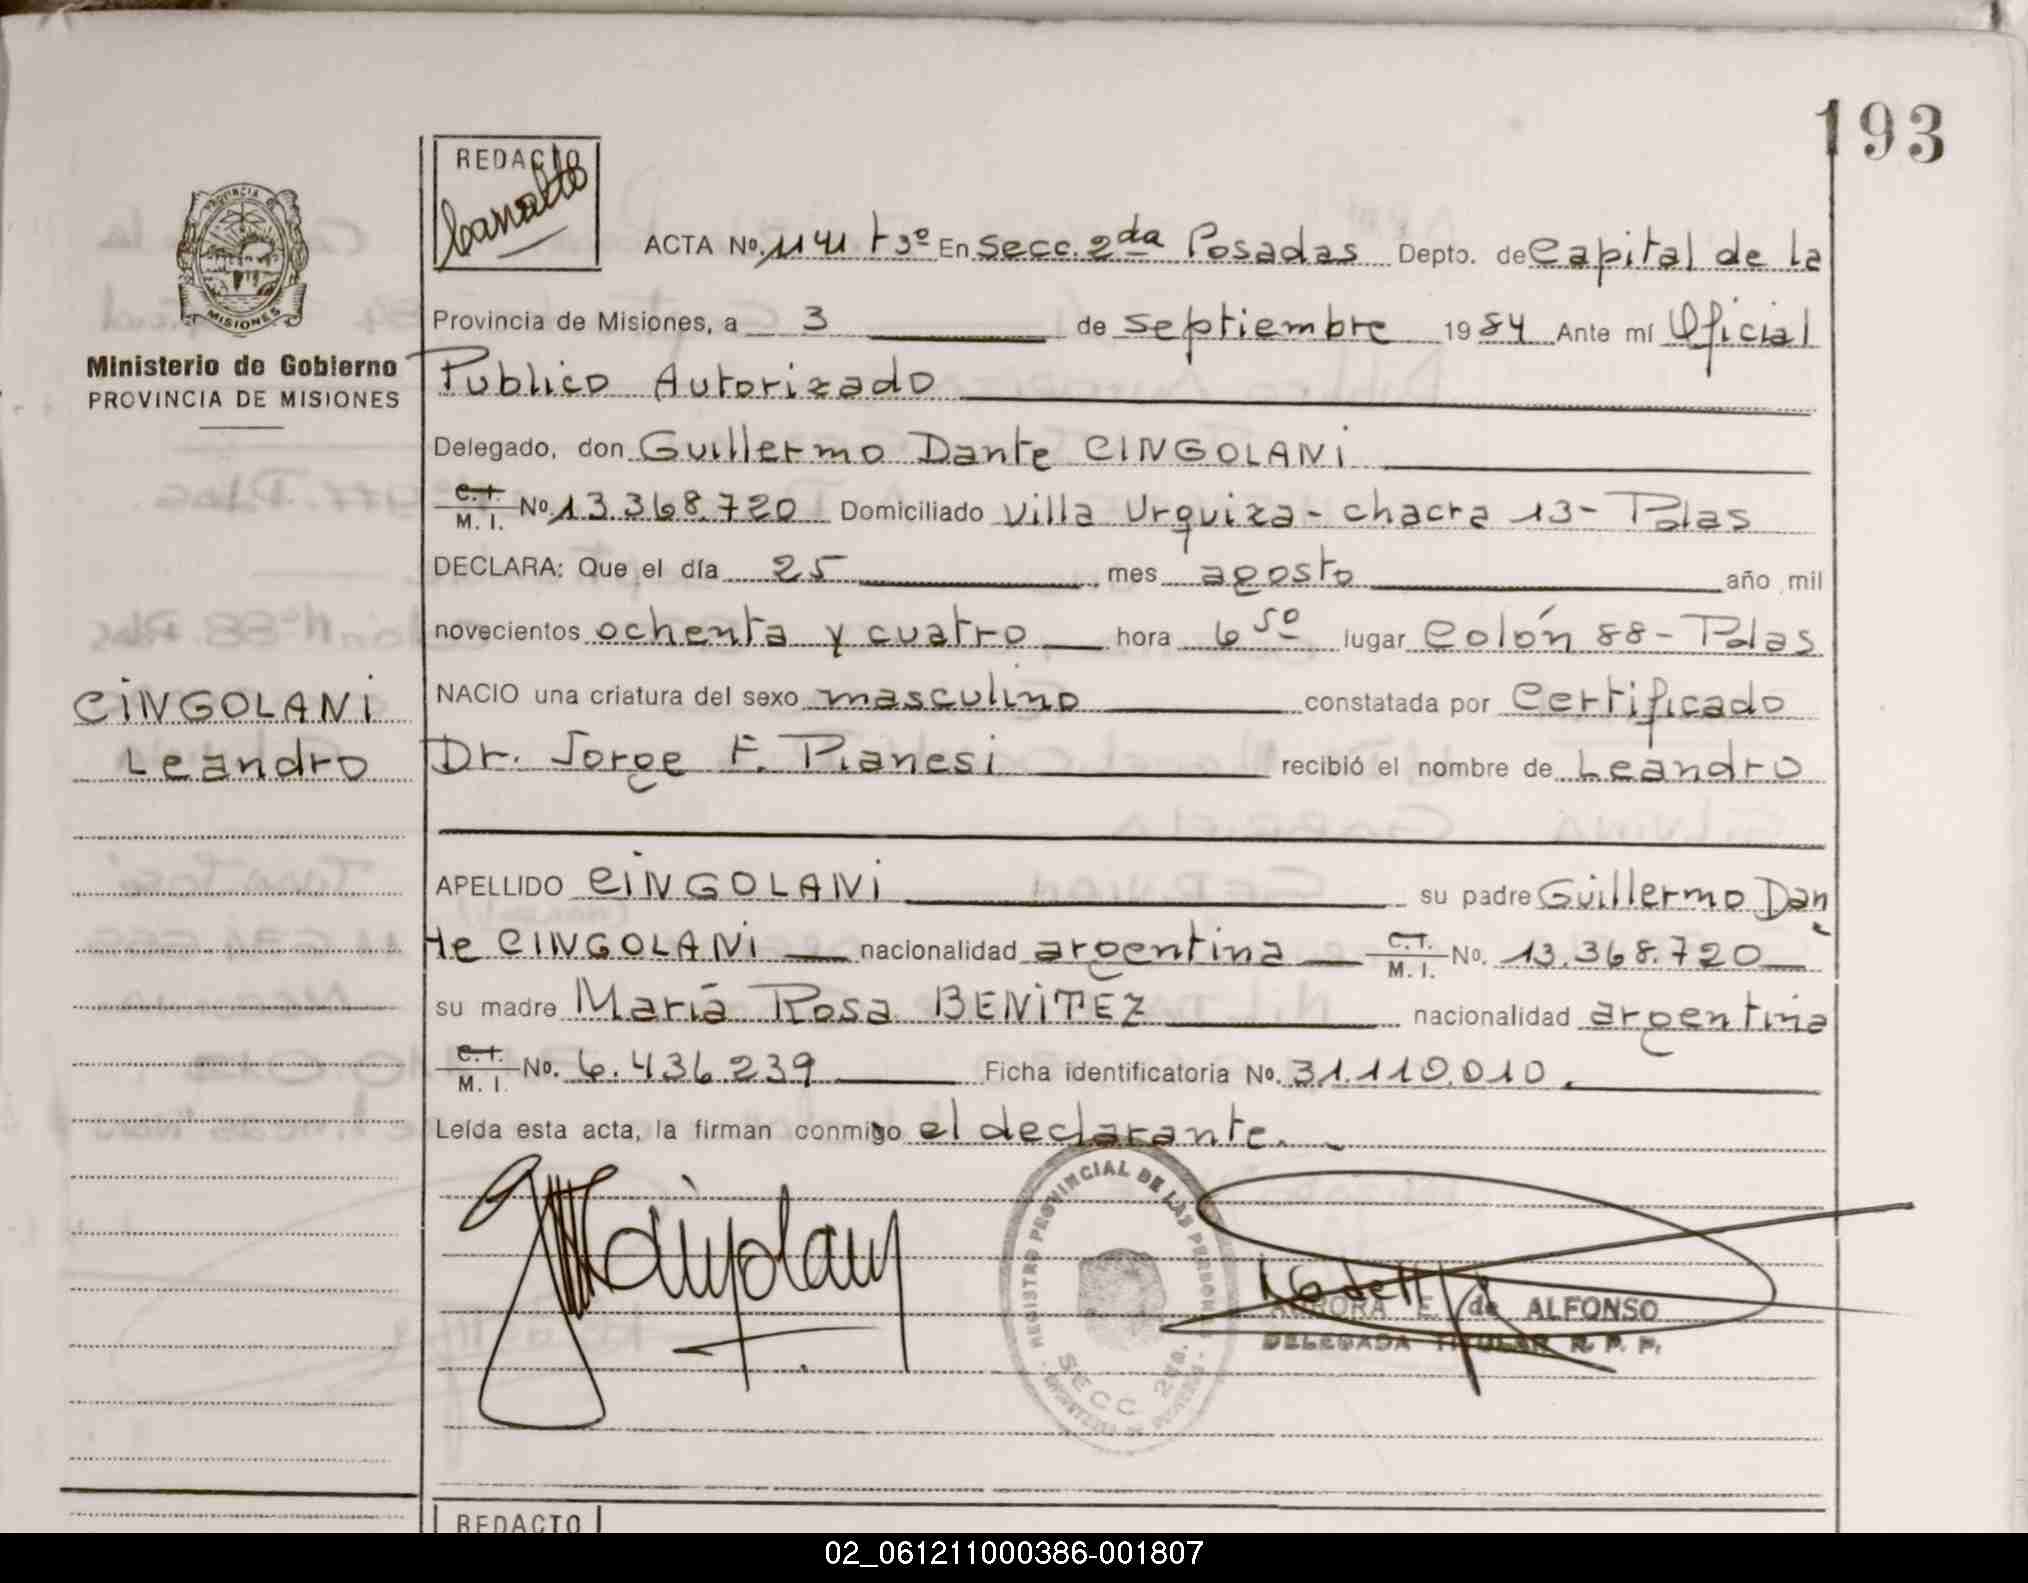 193
REDACTO
PROVINCIA DE
MISIONES
Ministerio de Gobierno
PROVINCIA DE MISIONES
ACTA No. 1141 t 3º En Secc. 2da Posadas Depto. de Capital de la
Provincia de Misiones, a 3 de septiembre 1984 Ante mí Oficial
Publico Autorizado
Delegado, don Guillermo Dante CINGOLANI
C.I.
M. I. No. 13.368.720 Domiciliado Villa Urquiza - chacra 13 - Pdas
DECLARA: Que el día 25 mes agosto año mil
novecientos ochenta y cuatro hora 6 50 lugar Colón 88 - Pdas
CINGOLANI
Leandro
NACIO una criatura del sexo masculino constatada por Certificado
Dr. Jorge F. Pianesi recibió el nombre de Leandro
APELLIDO CINGOLANI su padre Guillermo Dan
te CINGOLANI nacionalidad argentina C.I. M. I. No. 13.368.720
su madre María Rosa BENITEZ nacionalidad argentina
C.I.
M. I. No. 6.436.239 Ficha identificatoria No. 31.110.010.
Leída esta acta, la firman conmigo el declarante.
REGISTRO PROVINCIAL DE LAS PERSONAS
SECC. 2da.
AURORA E. de ALFONSO
DELEGADA TITULAR R. P. P.
REDACTO
02_061211000386-001807